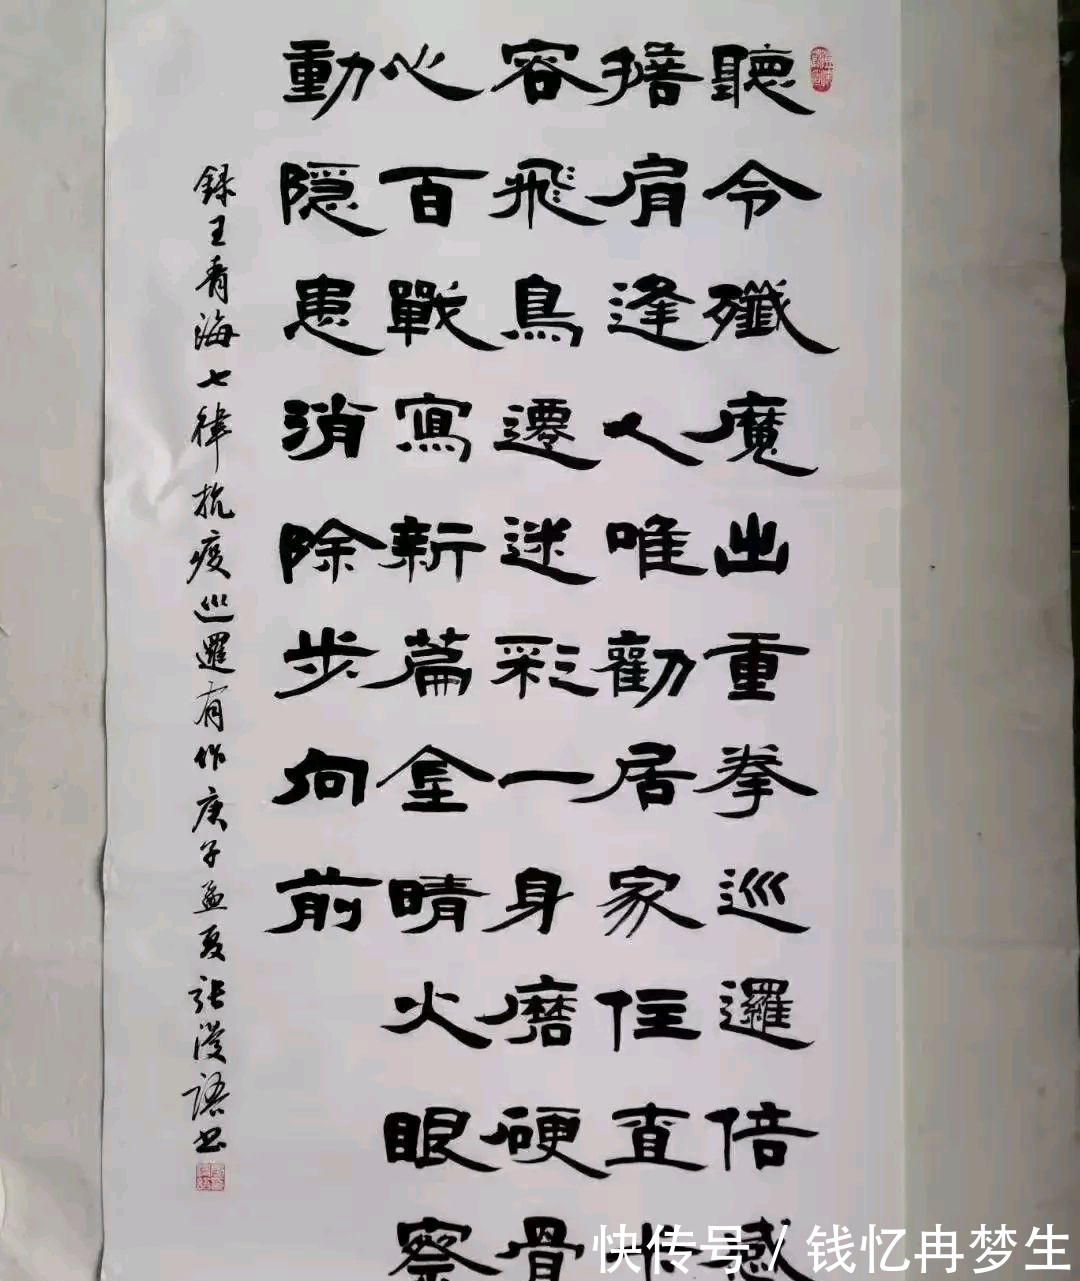 聽令殲魔出重拳巡邏倍感
擔肩逢人唯勸居家住查
容飛鳥遷迷彩一身磨硬骨
心百戰寫新篇金晴火眼察
動隐患消除步向前
録王青海七律抗疫巡邏有作庚子孟夏張書
快传号 / 钱忆冉梦生